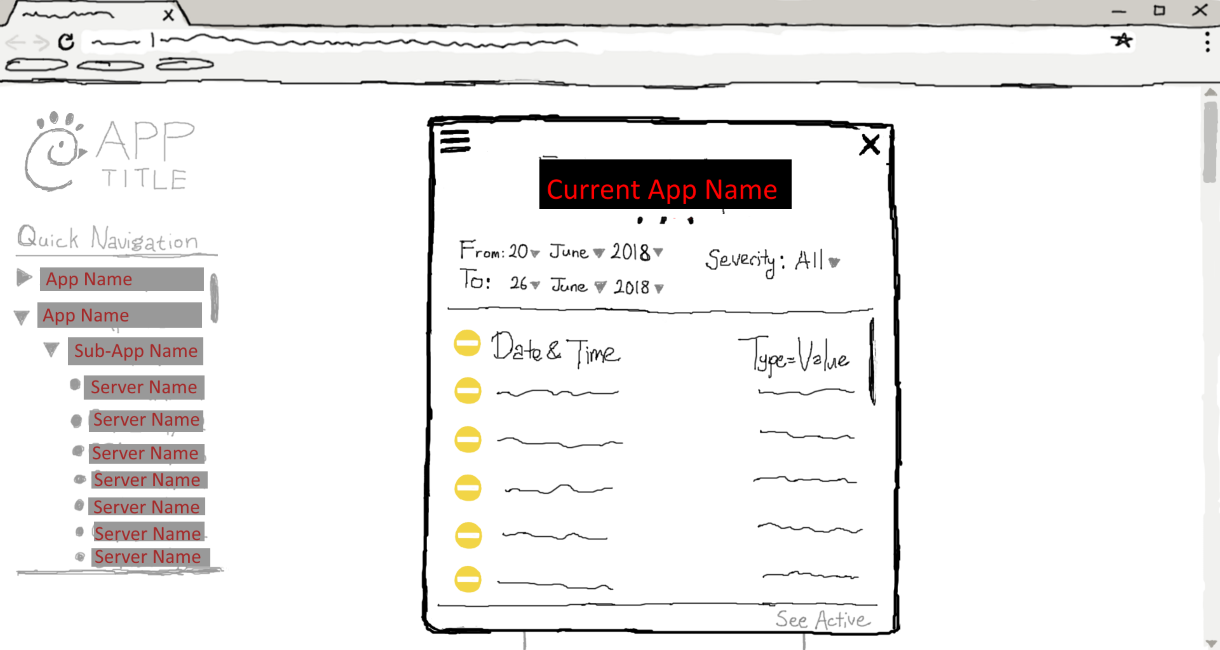 APP
TITLE
Quick Navigation
App Name
App Name
Sub-App Name
Server Name
Server Name
Server Name
Server Name
Server Name
Server Name
Server Name
Current App Name
From: 20 June 2018
To: 26 June 2018
Severity: All
Date & Time Type=Value
See Active